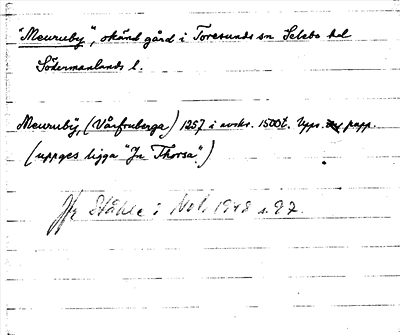 "Meuruby", okänd gård i Toresunds sn Selebo hd
Södermanlands l.
Meuruby, (Vårfruberga) 1257 i avskr. 1500t. Upps. papp.
(uppges ligga "Jn Thorsa".)
Jfr Ståhle i NoB 1948 s. 97.